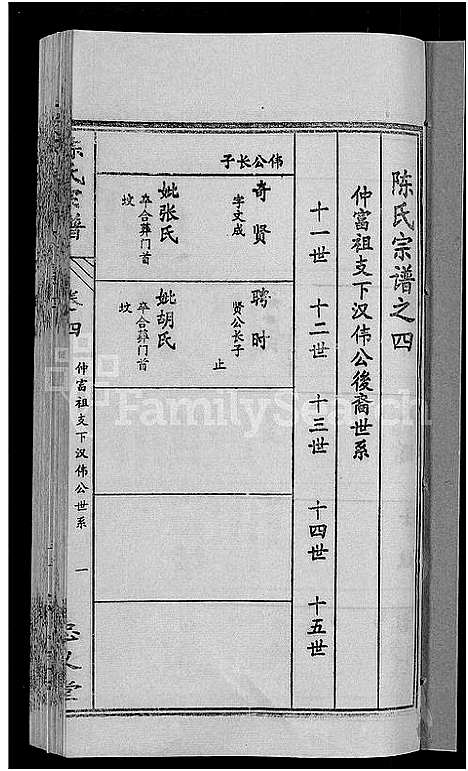 陈氏宗谱之四
仲富祖支下汉伟公後裔世系
十一世 十二世 十三世 十四世 十五世
伟公长子
奇贤
字文成
妣张氏
卒合葬门首
坟
聘时
贤公长子
止
妣胡氏
卒合葬门首
坟
陈氏宗谱
卷四
仲富祖支下汉伟公世系
一
忠义堂
FamilySearch